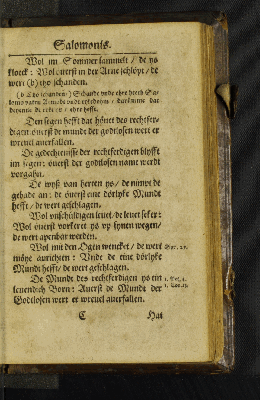 Salomonis.
Wol im Sommer sammelt / de ys
kloeck : Wol öuerst in der Arne schlöpt / de
wert (b) tho schanden.
(b) Tho schanden.) Schande vnde ehre heth Sa-
lomo
Den segen hefft dat höuet des rechtfer-
digen öuerst de mundt der godtlosen wert er
wreuel auerfallen.
De gedechtenisse der rechtferdigen blyfft
im segen: öuerst der godtlosen name werdt
vorgahn.
De wyß van herten ys / de nimpt de
gebade an : de öuerst eine dörlyke Mundt
hefft / de wert geschlagen.
Wol vnschüldigen leuet / de leuet seker :
Wol öuerst vorkeret ys vp synen wegen /
de wert apenbar werden.
Wol mit den Ogen wencket / de wert
möye anrichten : Vnde de eine dörlyke
Mundt hefft / de wert geschlagen.
De Mundt des rechtferdigen ys ein
leuendich Born : Auerst de Mundt der
Godtlosen wert er wreuel auerfallen.
C Hat